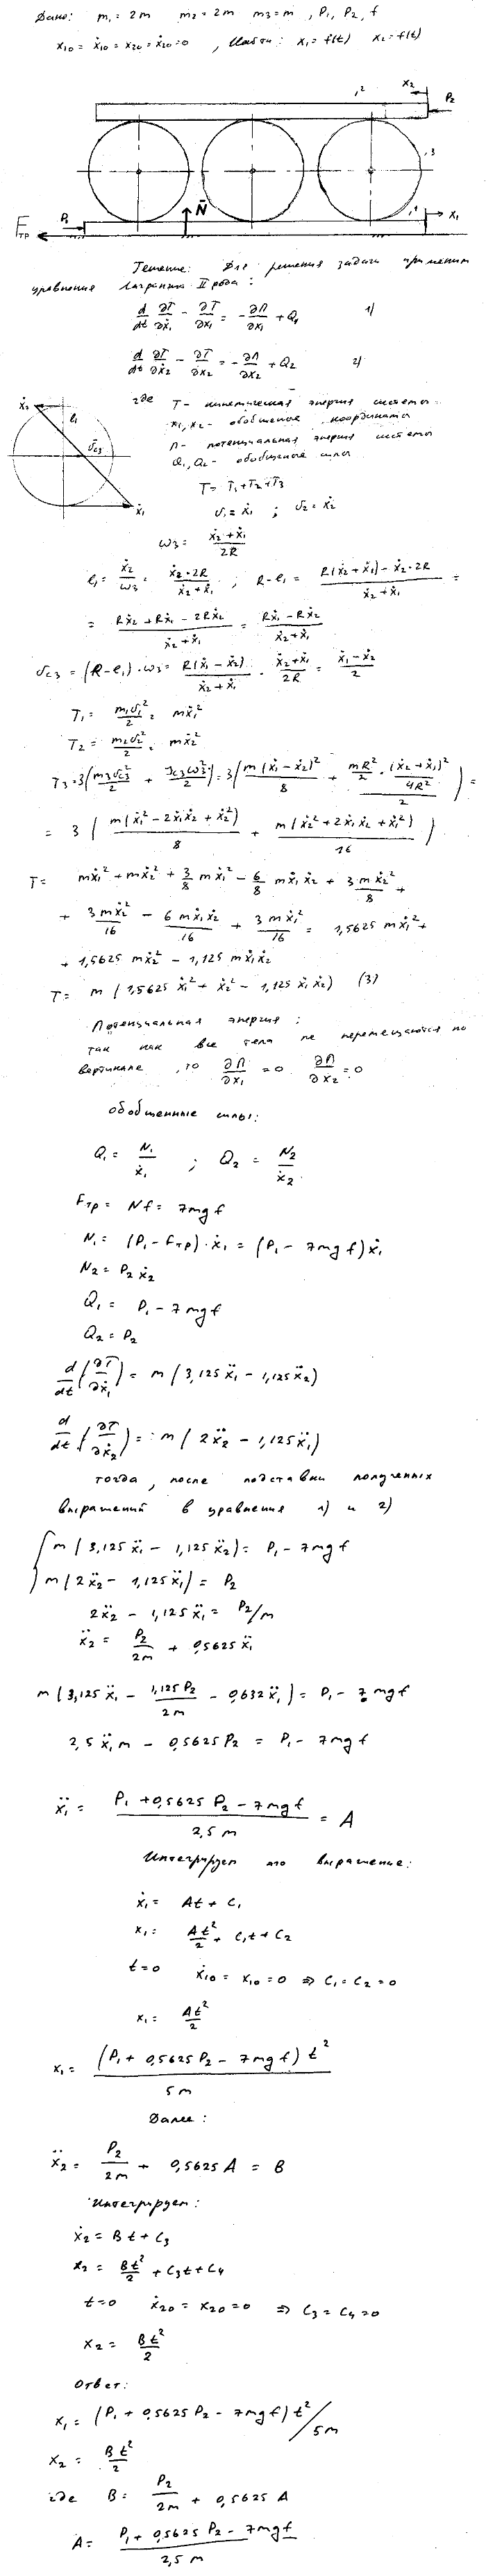 Дано: m₁ = 2m m₂ = 2m m₃ = m , P₁, P₂, f
x₁₀ = ẋ₁₀ = x₂₀ = ẋ₂₀ = 0 , Найти: x₁ = f(t) x₂ = f(t)
2 x₂
P₂
3
P₁ N̄ 1 x₁
Fтр
Решение: Для решения задачи применим
уравнения Лагранжа II рода:
d/dt ∂T/∂ẋ₁ − ∂T/∂x₁ = −∂П/∂x₁ + Q₁ 1)
d/dt ∂T/∂ẋ₂ − ∂T/∂x₂ = −∂П/∂x₂ + Q₂ 2)
ẋ₂ ℓ₁ v̄c₃ ẋ₁
где T - кинетическая энергия системы
x₁, x₂ - обобщеные координаты
П - потенциальная энергия системы
Q₁, Q₂ - обобщеные силы
T = T₁ + T₂ + T₃
v₁ = ẋ₁ ; v₂ = ẋ₂
ω₃ = (ẋ₂ + ẋ₁)/2R
ℓ₁ = ẋ₂/ω₃ = ẋ₂·2R/(ẋ₂ + ẋ₁) ; R − ℓ₁ = (R(ẋ₂ + ẋ₁) − ẋ₂·2R)/(ẋ₂ + ẋ₁) =
= (Rẋ₂ + Rẋ₁ − 2Rẋ₂)/(ẋ₂ + ẋ₁) = (Rẋ₁ − Rẋ₂)/(ẋ₂ + ẋ₁)
vc₃ = (R − ℓ₁)·ω₃ = R(ẋ₁ − ẋ₂)/(ẋ₂ + ẋ₁) · (ẋ₂ + ẋ₁)/2R = (ẋ₁ − ẋ₂)/2
T₁ = m₁v₁²/2 = mẋ₁²
T₂ = m₂v₂²/2 = mẋ₂²
T₃ = 3(m₃vc₃²/2 + Jc₃ω₃²/2) = 3(m(ẋ₁ − ẋ₂)²/8 + (mR²/2 · (ẋ₂ + ẋ₁)²/4R²)/2) =
= 3(m(ẋ₁² − 2ẋ₁ẋ₂ + ẋ₂²)/8 + m(ẋ₂² + 2ẋ₁ẋ₂ + ẋ₁²)/16)
T = mẋ₁² + mẋ₂² + 3/8 mẋ₁² − 6/8 mẋ₁ẋ₂ + 3mẋ₂²/8 +
+ 3mẋ₂²/16 − 6mẋ₁ẋ₂/16 + 3mẋ₁²/16 = 1,5625 mẋ₁² +
+ 1,5625 mẋ₂² − 1,125 mẋ₁ẋ₂
T = m(1,5625 ẋ₁² + ẋ₂² − 1,125 ẋ₁ẋ₂) (3)
Потенциальная энергия:
так как все тела не перемещаются по
вертикале , то ∂П/∂x₁ = 0 ∂П/∂x₂ = 0
обобщенные силы:
Q₁ = N₁/ẋ₁ ; Q₂ = N₂/ẋ₂
Fтр = Nf = 7mgf
N₁ = (P₁ − Fтр)·ẋ₁ = (P₁ − 7mgf)ẋ₁
N₂ = P₂ẋ₂
Q₁ = P₁ − 7mgf
Q₂ = P₂
d/dt(∂T/∂ẋ₁) = m(3,125ẍ₁ − 1,125ẍ₂)
d/dt(∂T/∂ẋ₂) = m(2ẍ₂ − 1,125ẍ₁)
тогда, после подставки полученных
выражений в уравнения 1) и 2)
m(3,125ẍ₁ − 1,125ẍ₂) = P₁ − 7mgf
m(2ẍ₂ − 1,125ẍ₁) = P₂
2ẍ₂ − 1,125ẍ₁ = P₂/m
ẍ₂ = P₂/2m + 0,5625ẍ₁
m(3,125ẍ₁ − 1,125P₂/2m − 0,632ẍ₁) = P₁ − 7mgf
2,5ẍ₁m − 0,5625P₂ = P₁ − 7mgf
ẍ₁ = (P₁ + 0,5625P₂ − 7mgf)/2,5m = A
Интегрируем это выражение:
ẋ₁ = At + C₁
x₁ = At²/2 + C₁t + C₂
t = 0 ẋ₁₀ = x₁₀ = 0 ⇒ C₁ = C₂ = 0
x₁ = At²/2
x₁ = (P₁ + 0,5625P₂ − 7mgf)t²/5m
Далее:
ẍ₂ = P₂/2m + 0,5625A = B
Интегрируем:
ẋ₂ = Bt + C₃
x₂ = Bt²/2 + C₃t + C₄
t = 0 ẋ₂₀ = x₂₀ = 0 ⇒ C₃ = C₄ = 0
x₂ = Bt²/2
Ответ:
x₁ = (P₁ + 0,5625P₂ − 7mgf)t²/5m
x₂ = Bt²/2
где B = P₂/2m + 0,5625A
A = (P₁ + 0,5625P₂ − 7mgf)/2,5m